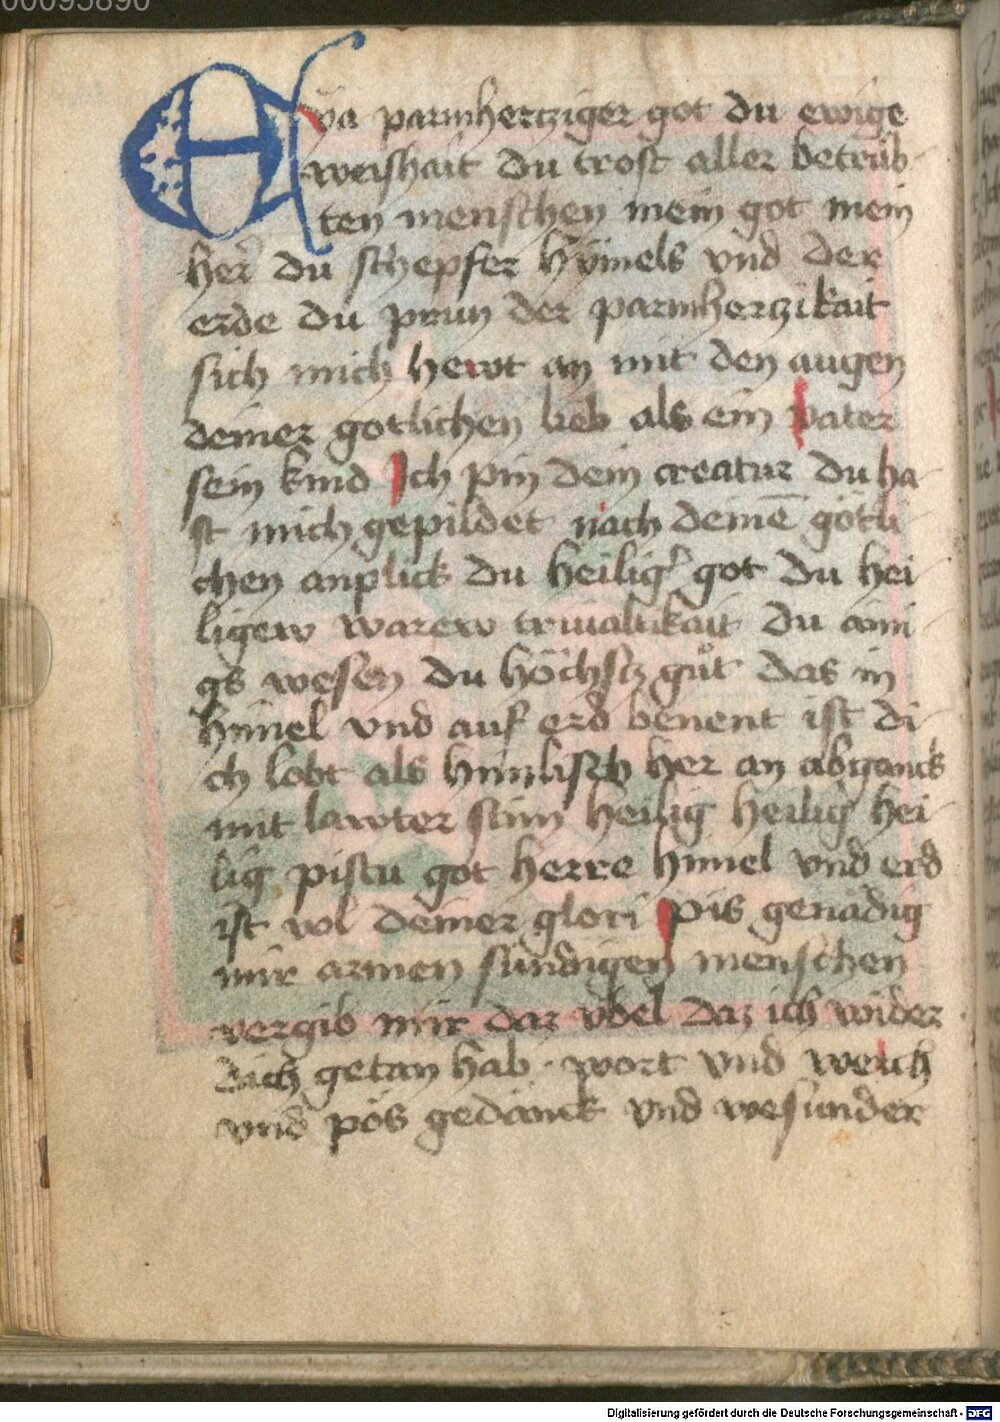 00095890
Eya parmhercziger got du ewige
weishait du trost aller betrüb
ten menschen mein got mein
her du schepfer hymels vnd der
erde du prun der parmherczikait
sich mich hewt an mit den augen
deiner gotlichen lieb als ein vater
sein kind Ich pin dein creatur du ha-
st mich gepildet nach deinē götli-
chen anplick du heilig' got du hei-
ligew warew triualtikait du aini-
gs wesen du höchstz gůt das in
himel vnd auf erd benent ist di-
ch lobt als himlisch her an abganck
mit lawter stim heilig heilig hei-
lig pistu got herre himel vnd erd
ist vol deiner glori pis genädig
mir armen sündigen menschen
vergib mir daz vbel daz ich wider
dich getan hab · wort vnd werch
vnd pös gedänck vnd wesunder
Digitalisierung gefördert durch die Deutsche Forschungsgemeinschaft - DFG